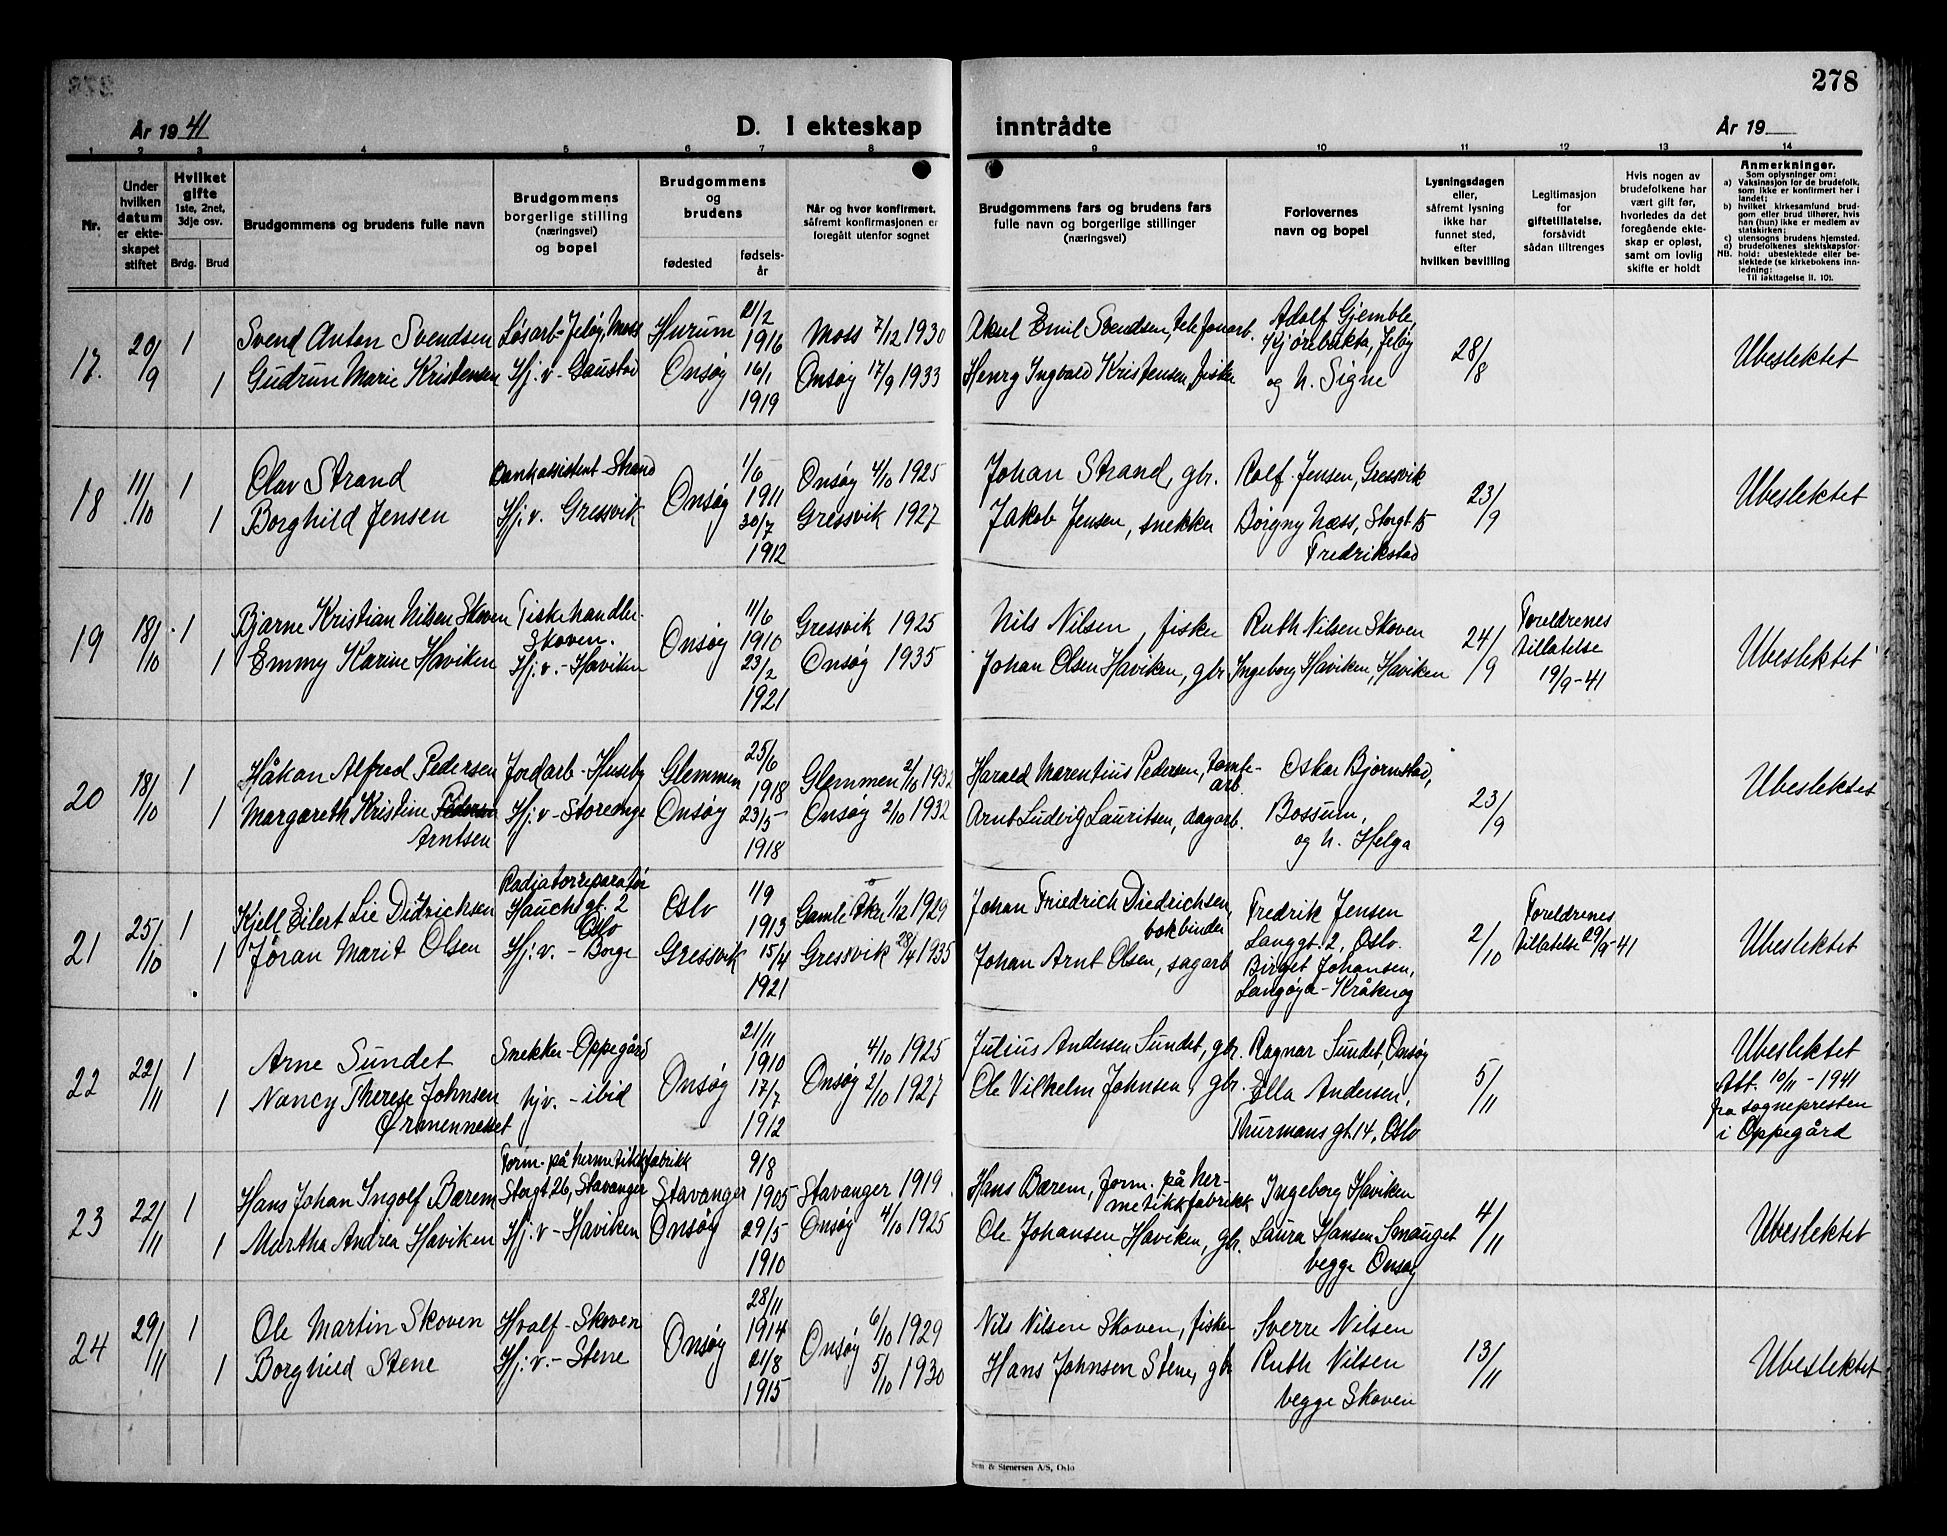 278
År 1941
D. I ekteskap inntrådte
År 19
1 2 3 4 5 6 7 8 9 10 11 12 13 14
Nr.
Under hvilken datum er ekteskapet stiftet
Hvilket gifte 1ste, 2net, 3dje osv.
Brdg. Brud
Brudgommens og brudens fulle navn
Brudgommens borgerlige stilling (næringsvei) og bopel
Brudgommens og brudens
fødested
fødselsår
Når og hvor konfirmert, såfremt konfirmasjonen er foregått utenfor sognet
Brudgommens fars og brudens fars fulle navn og borgerlige stillinger (næringsvei)
Forlovernes navn og bopel
Lysningsdagen eller, såfremt lysning ikke har funnet sted, efter hvilken bevilling
Legitimasjon for giftetillatelse, forsåvidt sådan tiltrenges
Hvis nogen av brudefolkene har vært gift før, hvorledes da det foregående ekteskap er opløst, samt om lovlig skifte er holdt
Anmerkninger.
Som oplysninger om:
a) Vaksinasjon for de brudefolk, som ikke er konfirmert her i landet;
b) hvilket kirkesamfund brudgom eller brud tilhører, hvis han (hun) ikke er medlem av statskirken;
c) utensogns brudens hjemsted.
d) brudefolkenes slektskapsforhold: ubeslektede eller beslektede (se kirkebokens innledning:
NB. Til iakttagelse ll. 10).
17. 20/9 1 Svend Anton Svendsen Løsarb-Jeløy, Moss Hurum 21/2 1916 Moss 7/12 1930 Aksel Emil Svendsen, telefonarb. Adolf Gjemble, Kjørebukta, Jeløy 28/8 Ubeslektet
1 Gudrun Marie Kristensen Hj.v-Gaustad Onsøy 16/1 1919 Onsøy 17/9 1933 Henry Ingvald Kristensen, fisker og h. Signe
18 11/10 1 Olav Strand Bankassistent-Strand Onsøy 1/6 1911 Onsøy 4/10 1925 Johan Strand, gbr. Rolf Jensen, Gressvik 23/9 Ubeslektet
1 Borghild Jensen Hj.v. Gressvik 30/7 1912 Gressvik 1927 Jakob Jensen, snekker Borgny Næss, Storgt 15 Fredrikstad
19 18/10 1 Bjarne Kristian Nilsen Skoven Fiskehandler- Skoven. Onsøy 11/6 1910 Gressvik 1925 Nils Nilsen, fisker Ruth Nilsen Skoven 24/9 Foreldrenes tillatelse 19/9-41 Ubeslektet
1 Emmy Karine Haviken Hj.v.-Haviken 23/2 1921 Onsøy 1935 Johan Olsen Haviken, gbr Ingeborg Haviken, Haviken
20 18/10 1 Håkon Alfred Pedersen Jordarb-Huseby Glemmen 25/6 1918 Glemmen 2/10 1932 Harald Marentius Pedersen, tomtearb. Oskar Bjørnstad, Bossum, 23/9 Ubeslektet
1 Margareth Kristine Pedersen Arntsen Hj.v-Storeenge Onsøy 23/5 1918 Onsøy 2/10 1932 Arnt Ludvig Lauritsen, dagarb. og h. Helga
21 25/10 1 Kjell Eilert Lie Didrichsen Radiatorreparatør Hauchsgt. 2 Oslo Oslo 1/9 1913 Gamle Aker 1/12 1929 Johan Friedrich Diedrichsen, bokbinder Fredrik Jensen Langgt. 2, Oslo. 2/10 Foreldrenes tillatelse 29/9-41 Ubeslektet
1 Jøran Marit Olsen Hj.v.-Borge Gressvik 15/4 1921 Gressvik 28/4 1935 Johan Arnt Olsen, sagarb Birget Johansen, Langøya-Kråkerøy
22 22/11 1 Arne Sundet Snekker-Oppegård Onsøy 21/11 1910 Onsøy 4/10 1925 Julius Andersen Sundet, gbr. Ragnar Sundet, Onsøy 5/11 Ubeslektet Att. 10/11-1941 fra sognepresten i Oppegård
1 Nancy Therese Johnsen Ørmennesset hjv.-ibid 17/7 1912 2/10 1927 Ole Vilhelm Johnsen, gbr. Ella Andersen, Thurmans gt. 14, Oslo
23 22/11 1 Hans Johan Ingolf Bærem Form. på hermetikkfabrikk Storgt 26, Stavanger Stavanger 9/8 1905 Stavanger 1919 Hans Bærem, form. på hermetikkfabrikk Ingeborg Haviken 4/11 Ubeslektet
1 Martha Andrea Haviken Hj.v-Haviken Onsøy 29/5 1910 Onsøy 4/10 1925 Ole Johansen Haviken, gbr. Laura Hansen Smauget begge Onsøy
24 29/11 1 Ole Martin Skoven Hvalf-Skoven Onsøy 28/11 1914 Onsøy 6/10 1929 Nils Nilsen Skoven, fisker Sverre Nilsen 13/11 Ubeslektet
1 Borghild Stene Hj.v.-Stene 21/8 1915 5/10 1930 Hans Johnsen Stene, gbr Ruth Nilsen begge Skoven
Sem & Stenersen A/S, Oslo